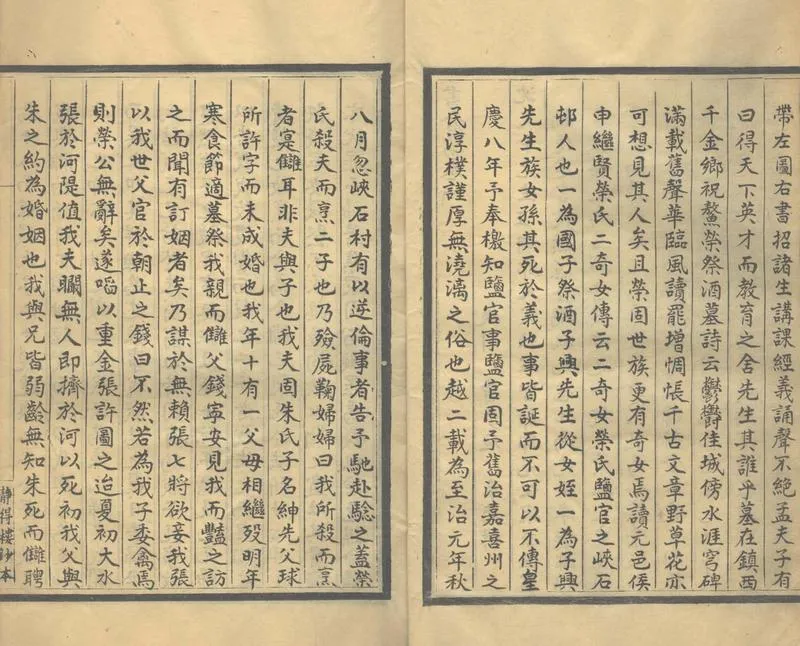 帶左圖右書招諸生講課經義誦聲不絕孟夫子有
曰得天下英才而教育之舍先生其誰乎墓在鎮西
千金鄉祝鰲榮祭酒墓詩云鬱鬱佳城傍水涯穹碑
滿載舊聲華臨風讀罷增惆悵千古文章野草花亦
可想見其人矣且榮固世族更有奇女焉讀元邑侯
申繼賢榮氏二奇女傳云二奇女榮氏鹽官之峽石
邨人也一為國子祭酒子興先生從女姪一為子興
先生族女孫其死於義也事皆誕而不可以不傳皇
慶八年予奉檄知鹽官事鹽官固予舊治嘉喜州之
民淳樸謹厚無澆漓之俗也越二載為至治元年秋
八月忽峽石村有以逆倫事者告予馳赴驗之蓋榮
氏殺夫而烹二子也乃殮屍鞠婦婦曰我所殺而烹
者寔讎耳非夫與子也我夫固朱氏子名紳先父球
所許字而未成婚也我年十有一父母相繼歿明年
寒食節適墓祭我親而讎父錢寧安見我而豔之訪
之而聞有訂姻者矣乃謀於無賴張七將欲妾我張
以我世父官於朝止之錢曰不然若為我子委禽焉
則榮公無辭矣遂啗以重金張許圖之迨夏初大水
張於河隄值我夫矙無人即擠於河以死初我父與
朱之約為婚姻也我與兄皆弱齡無知朱死而讎聘
靜得樓鈔本